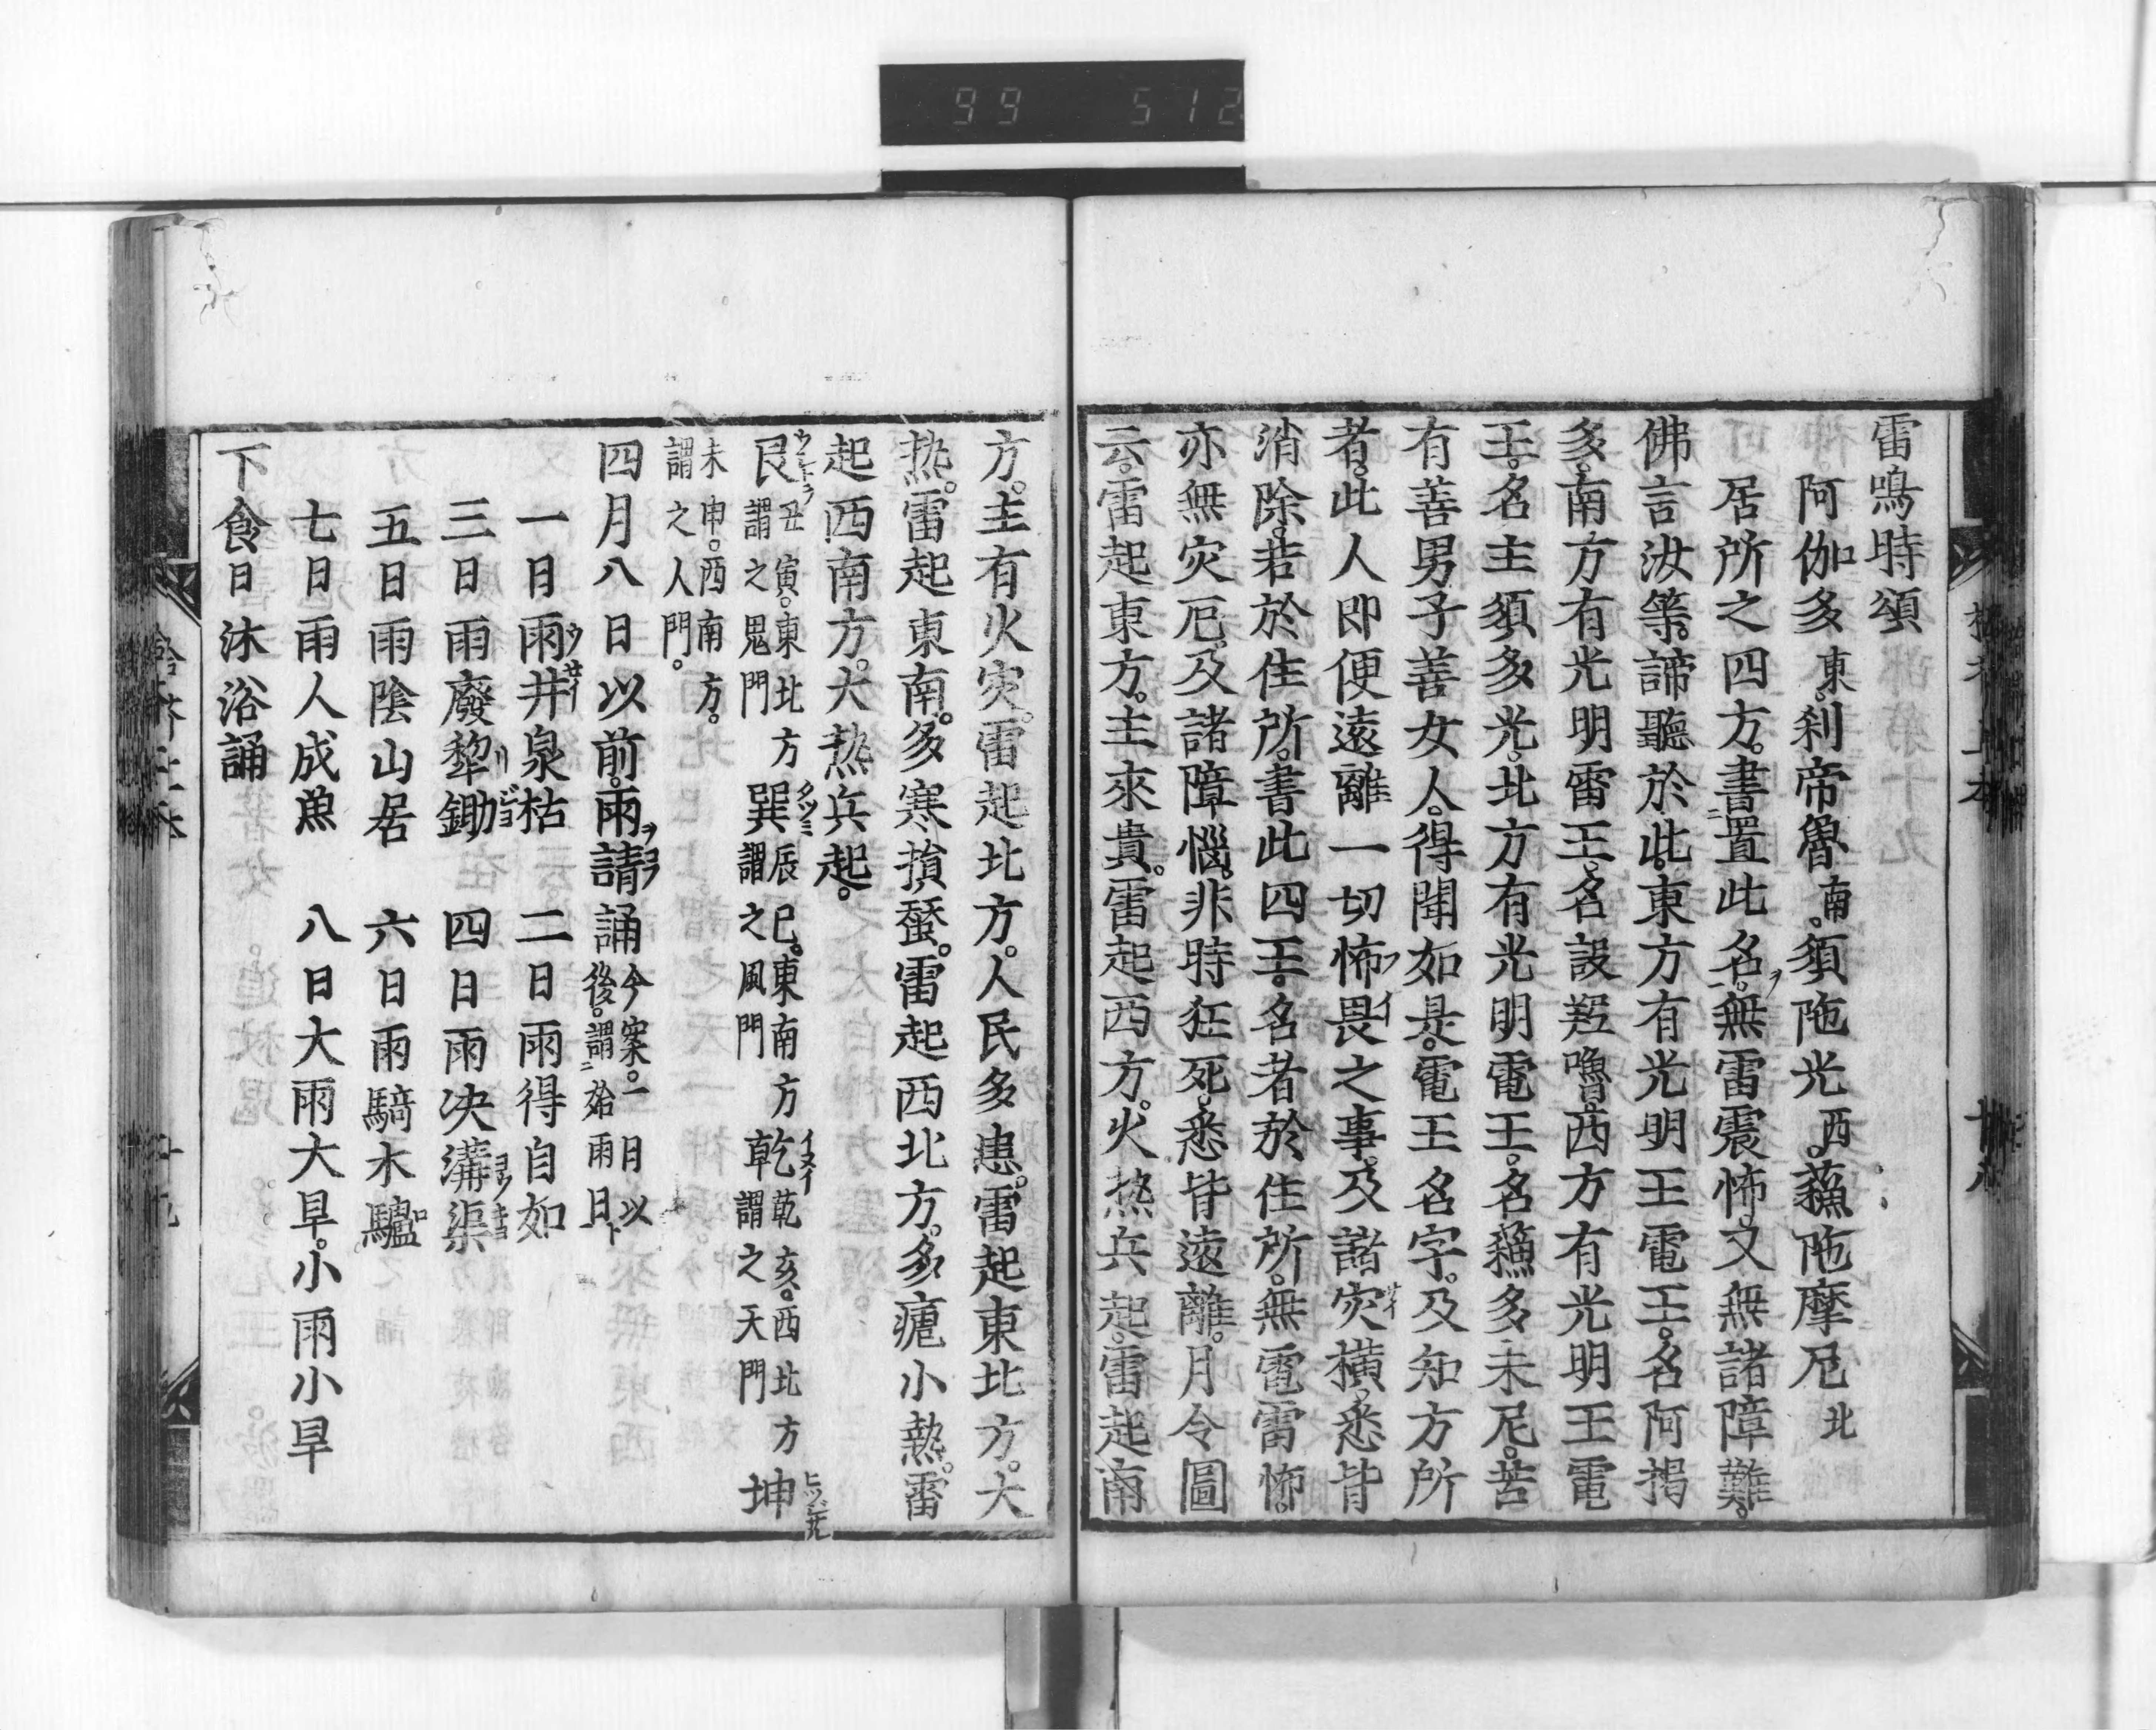 雷鳴時頌
阿伽多東。刹帝魯南。須陁光西。蘓陁摩尼北
居所之四方。書置此名。無雷震怖。又無諸障難。
佛言汝等。諦聽於此。東方有光明王電王。名阿掲
多。南方有光明雷王。名設羅嚕。西方有光明王電
王。名主須多光。北方有光明電王。名蘓多未尼。若
有善男子善女人。得聞如是。電王名字。及知方所
者。此人即便遠離一切怖畏之事。及諸灾横。悉皆
消除。若於住所。書此四王。名者於住所。無電雷怖。
亦無灾厄。及諸障惱。非時狂死。悉皆遠離。月令圖
云。雷起東方。主來貴。雷起西方。火热兵起。雷起南
方。主有火灾。雷起北方。人民多患。雷起東北方。大
热。雷起東南。多寒損蚕。雷起西北方。多瘧小熱。雷
起西南方。大热兵起。
艮丑寅。東北方謂之鬼門 巽辰巳。東南方謂之風門 乾乾亥。西北方謂之天門 坤
未申。西南方。謂之人門。
四月八日以前。雨請誦今案。一日以後。謂始雨日
一日雨井泉枯 二日雨得自如
三日雨廢犂鋤 四日雨决溝渠
五日雨陰山居 六日雨騎木驢
七日雨人成魚 八日大雨大旱。小雨小旱
下食日沐浴誦
99 512